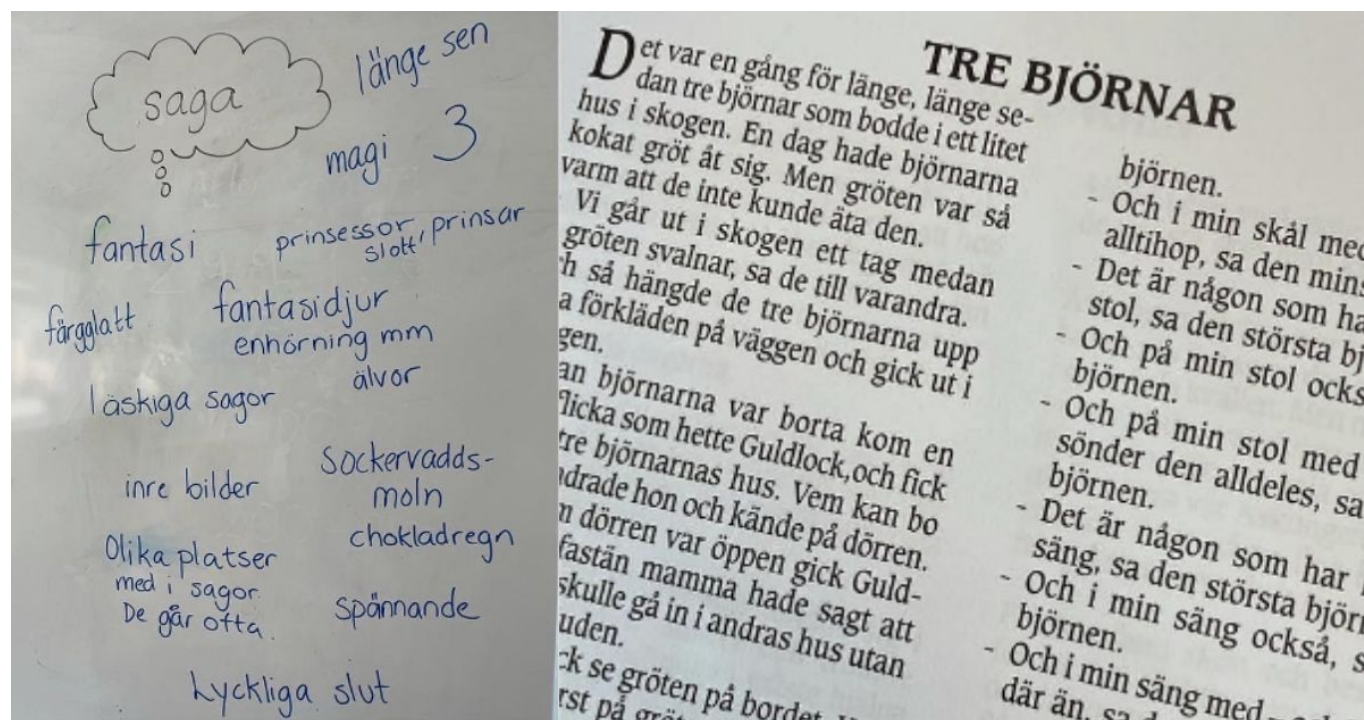 saga
länge sen
magi 3
fantasi
prinsessor, prinsar
slott
färgglatt
fantasidjur
enhörning mm
älvor
läskiga sagor
inre bilder
Sockervadds-
moln
chokladregn
Olika platser
med i sagor.
De går ofta.
spännande
Lyckliga slut
TRE BJÖRNAR
Det var en gång för länge, länge se-
dan tre björnar som bodde i ett litet
hus i skogen. En dag hade björnarna
kokat gröt åt sig. Men gröten var så
varm att de inte kunde äta den.
Vi går ut i skogen ett tag medan
gröten svalnar, sa de till varandra.
h så hängde de tre björnarna upp
a förkläden på väggen och gick ut i
gen.
an björnarna var borta kom en
flicka som hette Guldlock, och fick
tre björnarnas hus. Vem kan bo
drade hon och kände på dörren.
n dörren var öppen gick Guld-
fastän mamma hade sagt att
skulle gå in i andras hus utan
uden.
ck se gröten på bordet.
rst på
björnen.
- Och i min skål med
alltihop, sa den mins
- Det är någon som ha
stol, sa den största bj
- Och på min stol ocks
björnen.
- Och på min stol med
sönder den alldeles, sa
björnen.
- Det är någon som har
säng, sa den största björ
- Och i min säng också, s
björnen.
- Och i min säng med
där än, sa